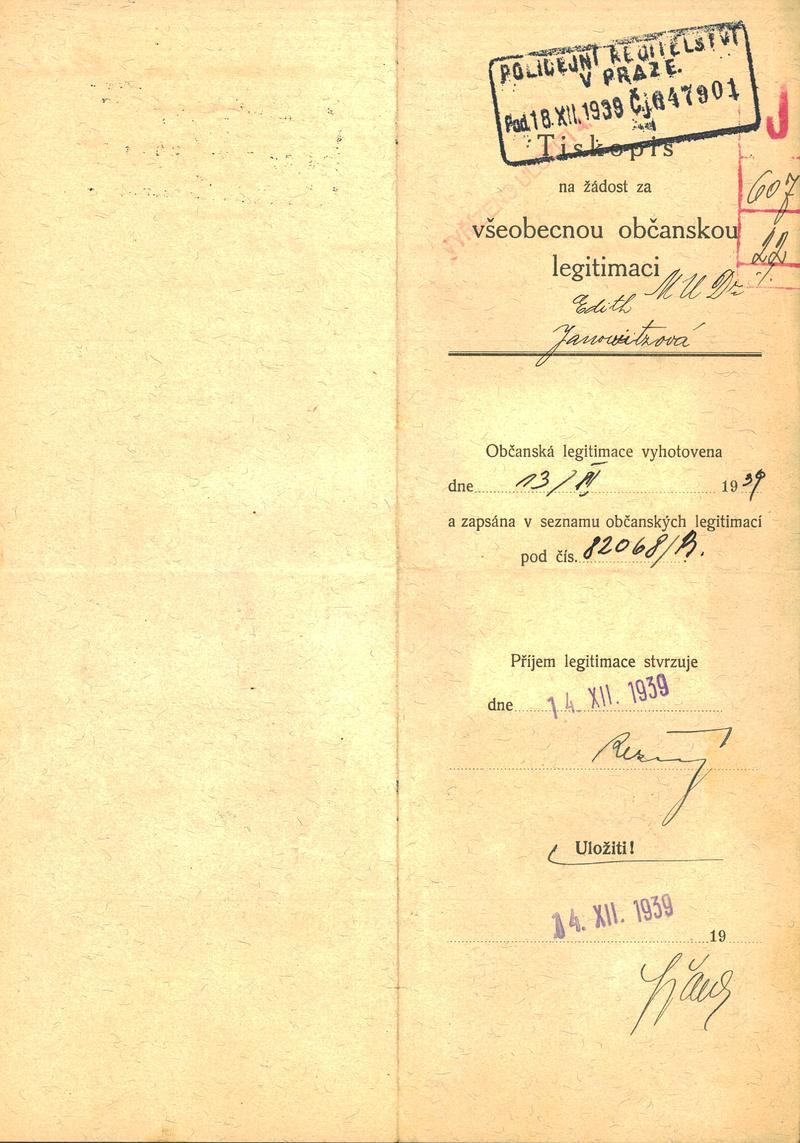 POLICEJNÍ ŘEDITELSTVÍ
V PRAZE.
Pod. 18. XII. 1939 Čj. 647901
J
Tiskopis
na žádost za
607
všeobecnou občanskou
22
legitimaci
Edith MUDr
Janowitzová
Občanská legitimace vyhotovena
dne 13/ 1939
a zapsána v seznamu občanských legitimací
pod čís. 82068/
Příjem legitimace stvrzuje
dne 14. XII. 1939
Uložiti!
14. XII. 1939
19